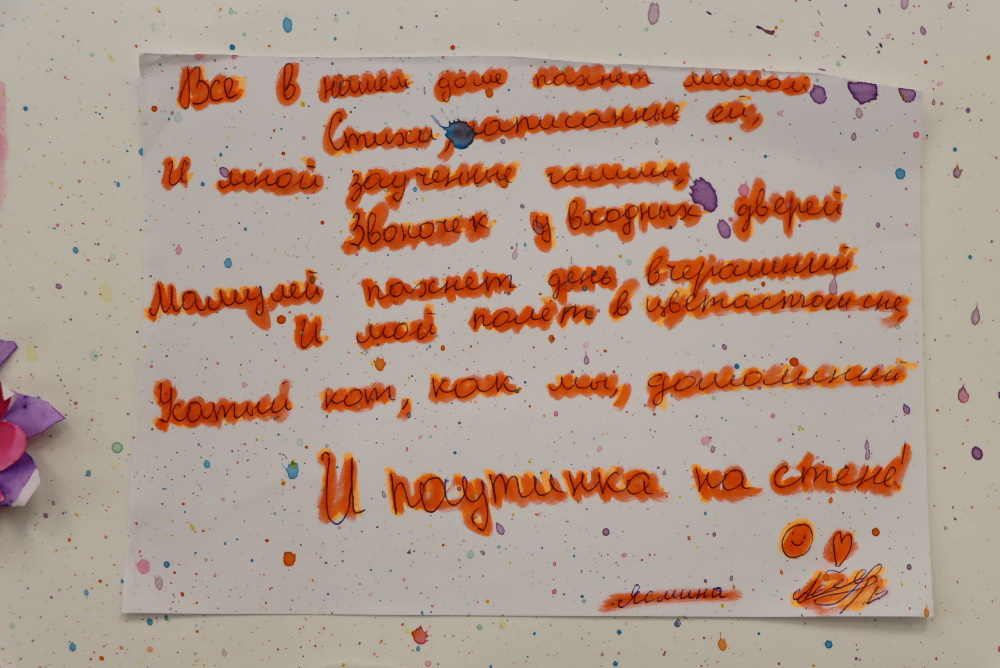 Все в нашем доме пахнет мамой
Стихи, написанные ей,
И мной заученные гаммы,
Звоночек у входных дверей
Мамулей пахнет день вчерашний
И мой полёт в цветастом сне,
Усатый кот, как мы, домашний
И паутинка на стене!
Ясмина